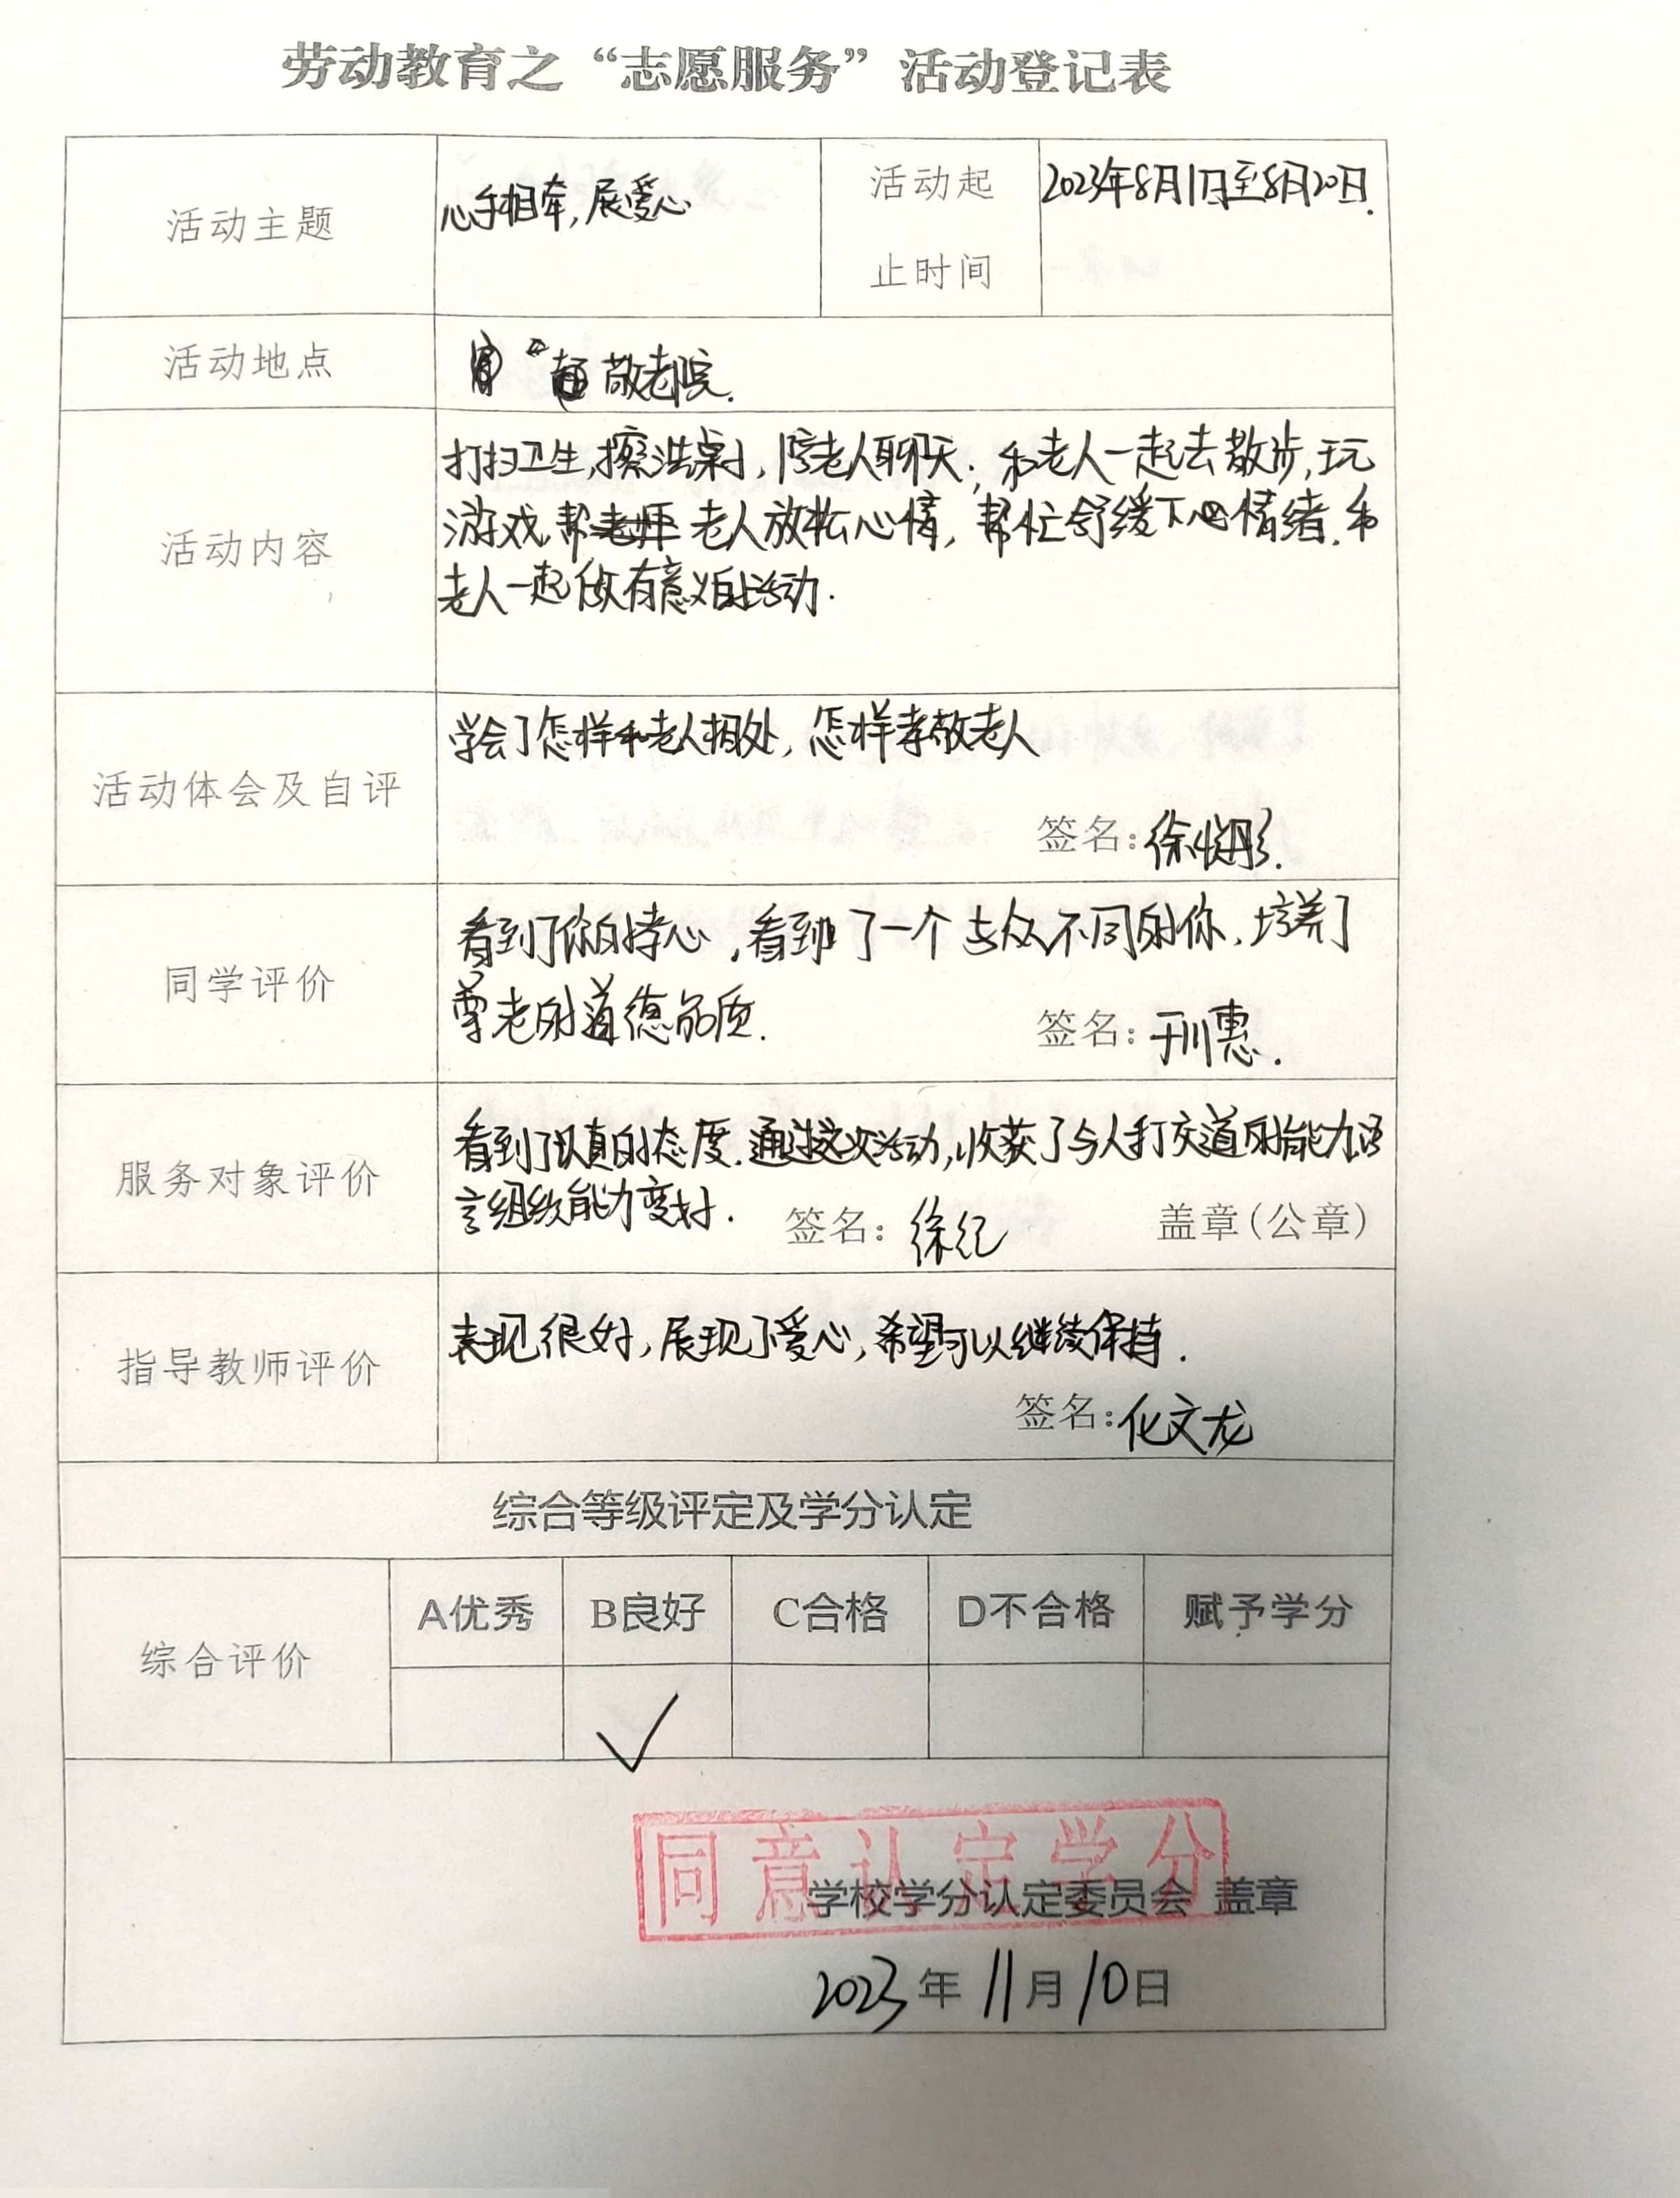 劳动教育之“志愿服务”活动登记表
活动主题
心手相牵,展爱心
活动起
止时间
2023年8月1日至8月20日.
活动地点
敬老院.
活动内容
打扫卫生,擦洗桌子,陪老人聊天,和老人一起去散步,玩
游戏,帮老人放松心情,帮忙舒缓下心情绪.和
老人一起做有意义的活动.
活动体会及自评
学会了怎样和老人相处,怎样孝敬老人
签名:徐悦彤.
同学评价
看到了你的孝心,看到了一个与众不同的你,培养了
尊老的道德品质.
签名:于川惠.
服务对象评价
看到了认真的态度.通过这次活动,收获了与人打交道的能力语
言组织能力变好.
签名:徐纪
盖章(公章)
指导教师评价
表现很好,展现了爱心,希望可以继续保持.
签名:化文龙
综合等级评定及学分认定
综合评价
A优秀 B良好 C合格 D不合格 赋予学分
√
同意认定学分
学校学分认定委员会 盖章
2023年11月10日